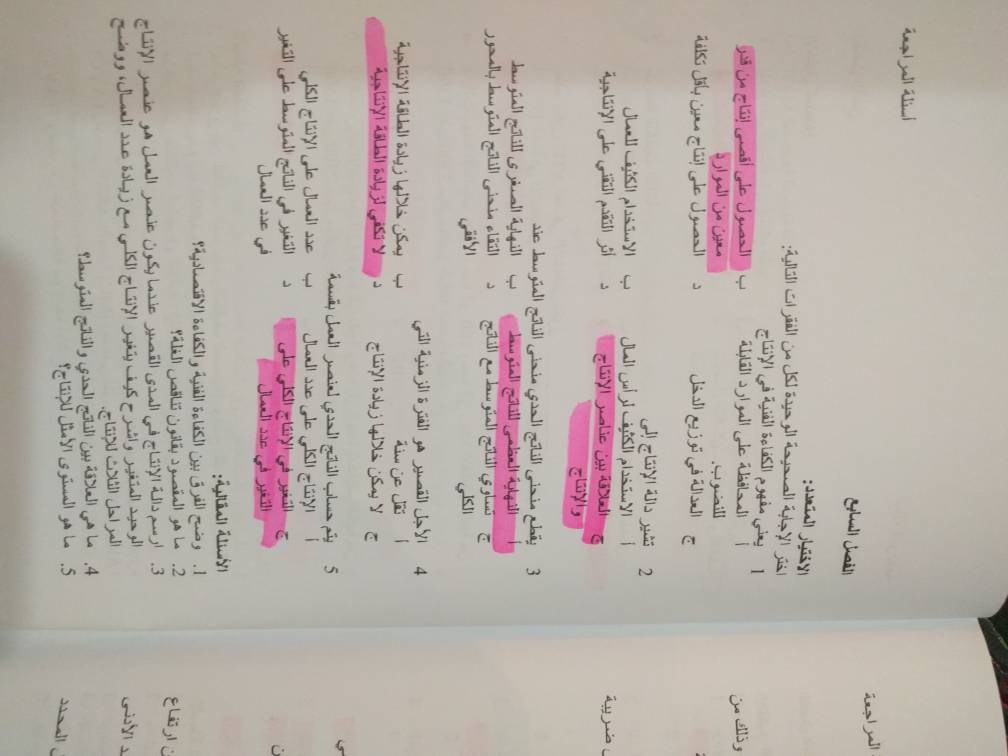 أسئلة المراجعة
الفصل السابع
الاختيار المتعدد:
اختر الإجابة الصحيحة الوحيدة لكل من الفقرات التالية:
1 يعني مفهوم الكفاءة الفنية في الإنتاج
أ المحافظة على الموارد القابلة للنضوب.
ب الحصول على أقصى إنتاج من قدر معين من الموارد
ج العدالة في توزيع الدخل
د الحصول على إنتاج معين بأقل تكلفة
2 تشير دالة الإنتاج إلى
أ الاستخدام الكثيف لرأس المال
ب الاستخدام الكثيف للعمال
ج العلاقة بين عناصر الإنتاج والإنتاج
د أثر التقدم التقني على الإنتاجية
3 يقطع منحنى الناتج الحدي منحنى الناتج المتوسط عند
أ النهاية العظمى للناتج المتوسط
ب النهاية الصغرى للناتج المتوسط
ج تساوي الناتج المتوسط مع الناتج الكلي
د التقاء منحنى الناتج المتوسط بالمحور الأفقي
4 الأجل القصير هو الفترة الزمنية التي
أ تقل عن سنة
ب يمكن خلالها زيادة الطاقة الإنتاجية
ج لا يمكن خلالها زيادة الإنتاج
د لا تكفي لزيادة الطاقة الإنتاجية
5 يتم حساب الناتج الحدي لعنصر العمل بقسمة
أ الإنتاج الكلي على عدد العمال
ب عدد العمال على الإنتاج الكلي
ج التغير في الإنتاج الكلي على التغير في عدد العمال
د التغير في الناتج المتوسط على التغير في عدد العمال
الأسئلة المقالية:
1. وضح الفرق بين الكفاءة الفنية والكفاءة الاقتصادية؟
2. ما هو المقصود بقانون تناقص الغلة؟
3. ارسم دالة الإنتاج في المدى القصير عندما يكون عنصر العمل هو عنصر الإنتاج
الوحيد المتغير واشرح كيف يتغير الإنتاج الكلي مع زيادة عدد العمال، ووضح
المراحل الثلاث للإنتاج.
4. ما هي العلاقة بين الناتج الحدي والناتج المتوسط؟
5. ما هو المستوى الأمثل للإنتاج؟
المراجعة
وذلك من
ضريبة
ن ارتفاع
د الأدنى
المحدد